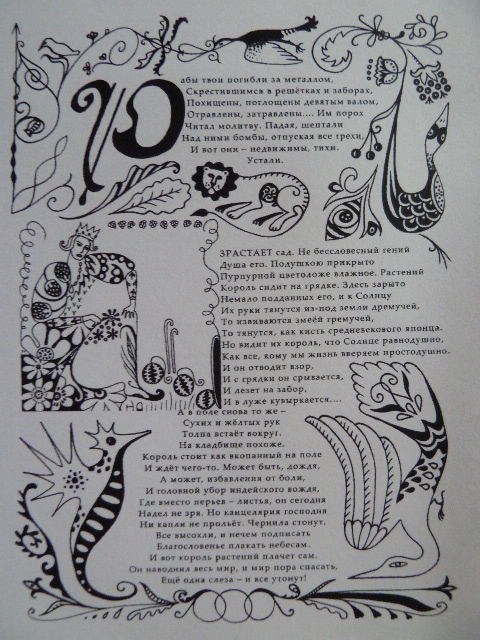 Рабы твои погибли за металлом,
Скрестившимся в решётках и заборах,
Похищены, поглощены девятым валом,
Отравлены, затравлены.... Им порох
Читал молитву. Падая, шептали
Над ними бомбы, отпуская все грехи,
И вот они – недвижимы, тихи.
Устали.
ЗРАСТАЕТ сад. Не бессловесный гений
Душа его. Подушкою прикрыто
Пурпурной цветоложе влажное. Растений
Король сидит на грядке. Здесь зарыто
Немало подданных его, и к Солнцу
Их руки тянутся из-под земли дремучей,
То извиваются змеёй гремучей,
То тянутся, как кисть средневекового японца.
Но видит их король, что Солнце равнодушно,
Как все, кому мы жизнь вверяем простодушно.
И он отводит взор,
И с грядки он срывается,
И лезет на забор,
И в луже кувыркается....
А в поле снова то же –
Сухих и жёлтых рук
Толпа встаёт вокруг.
На кладбище похоже.
Король стоит как вкопанный на поле
И ждёт чего-то. Может быть, дождя,
А может, избавления от боли,
И головной убор индейского вождя,
Где вместо перьев – листья, он сегодня
Надел не зря. Но канцелярия господня
Ни капли не прольёт. Чернила стонут,
Все высохли, и нечем подписать
Благословенье плакать небесам.
И вот король растений плачет сам.
Он наводнил весь мир, и мир пора спасать,
Ещё одна слеза – и все утонут!